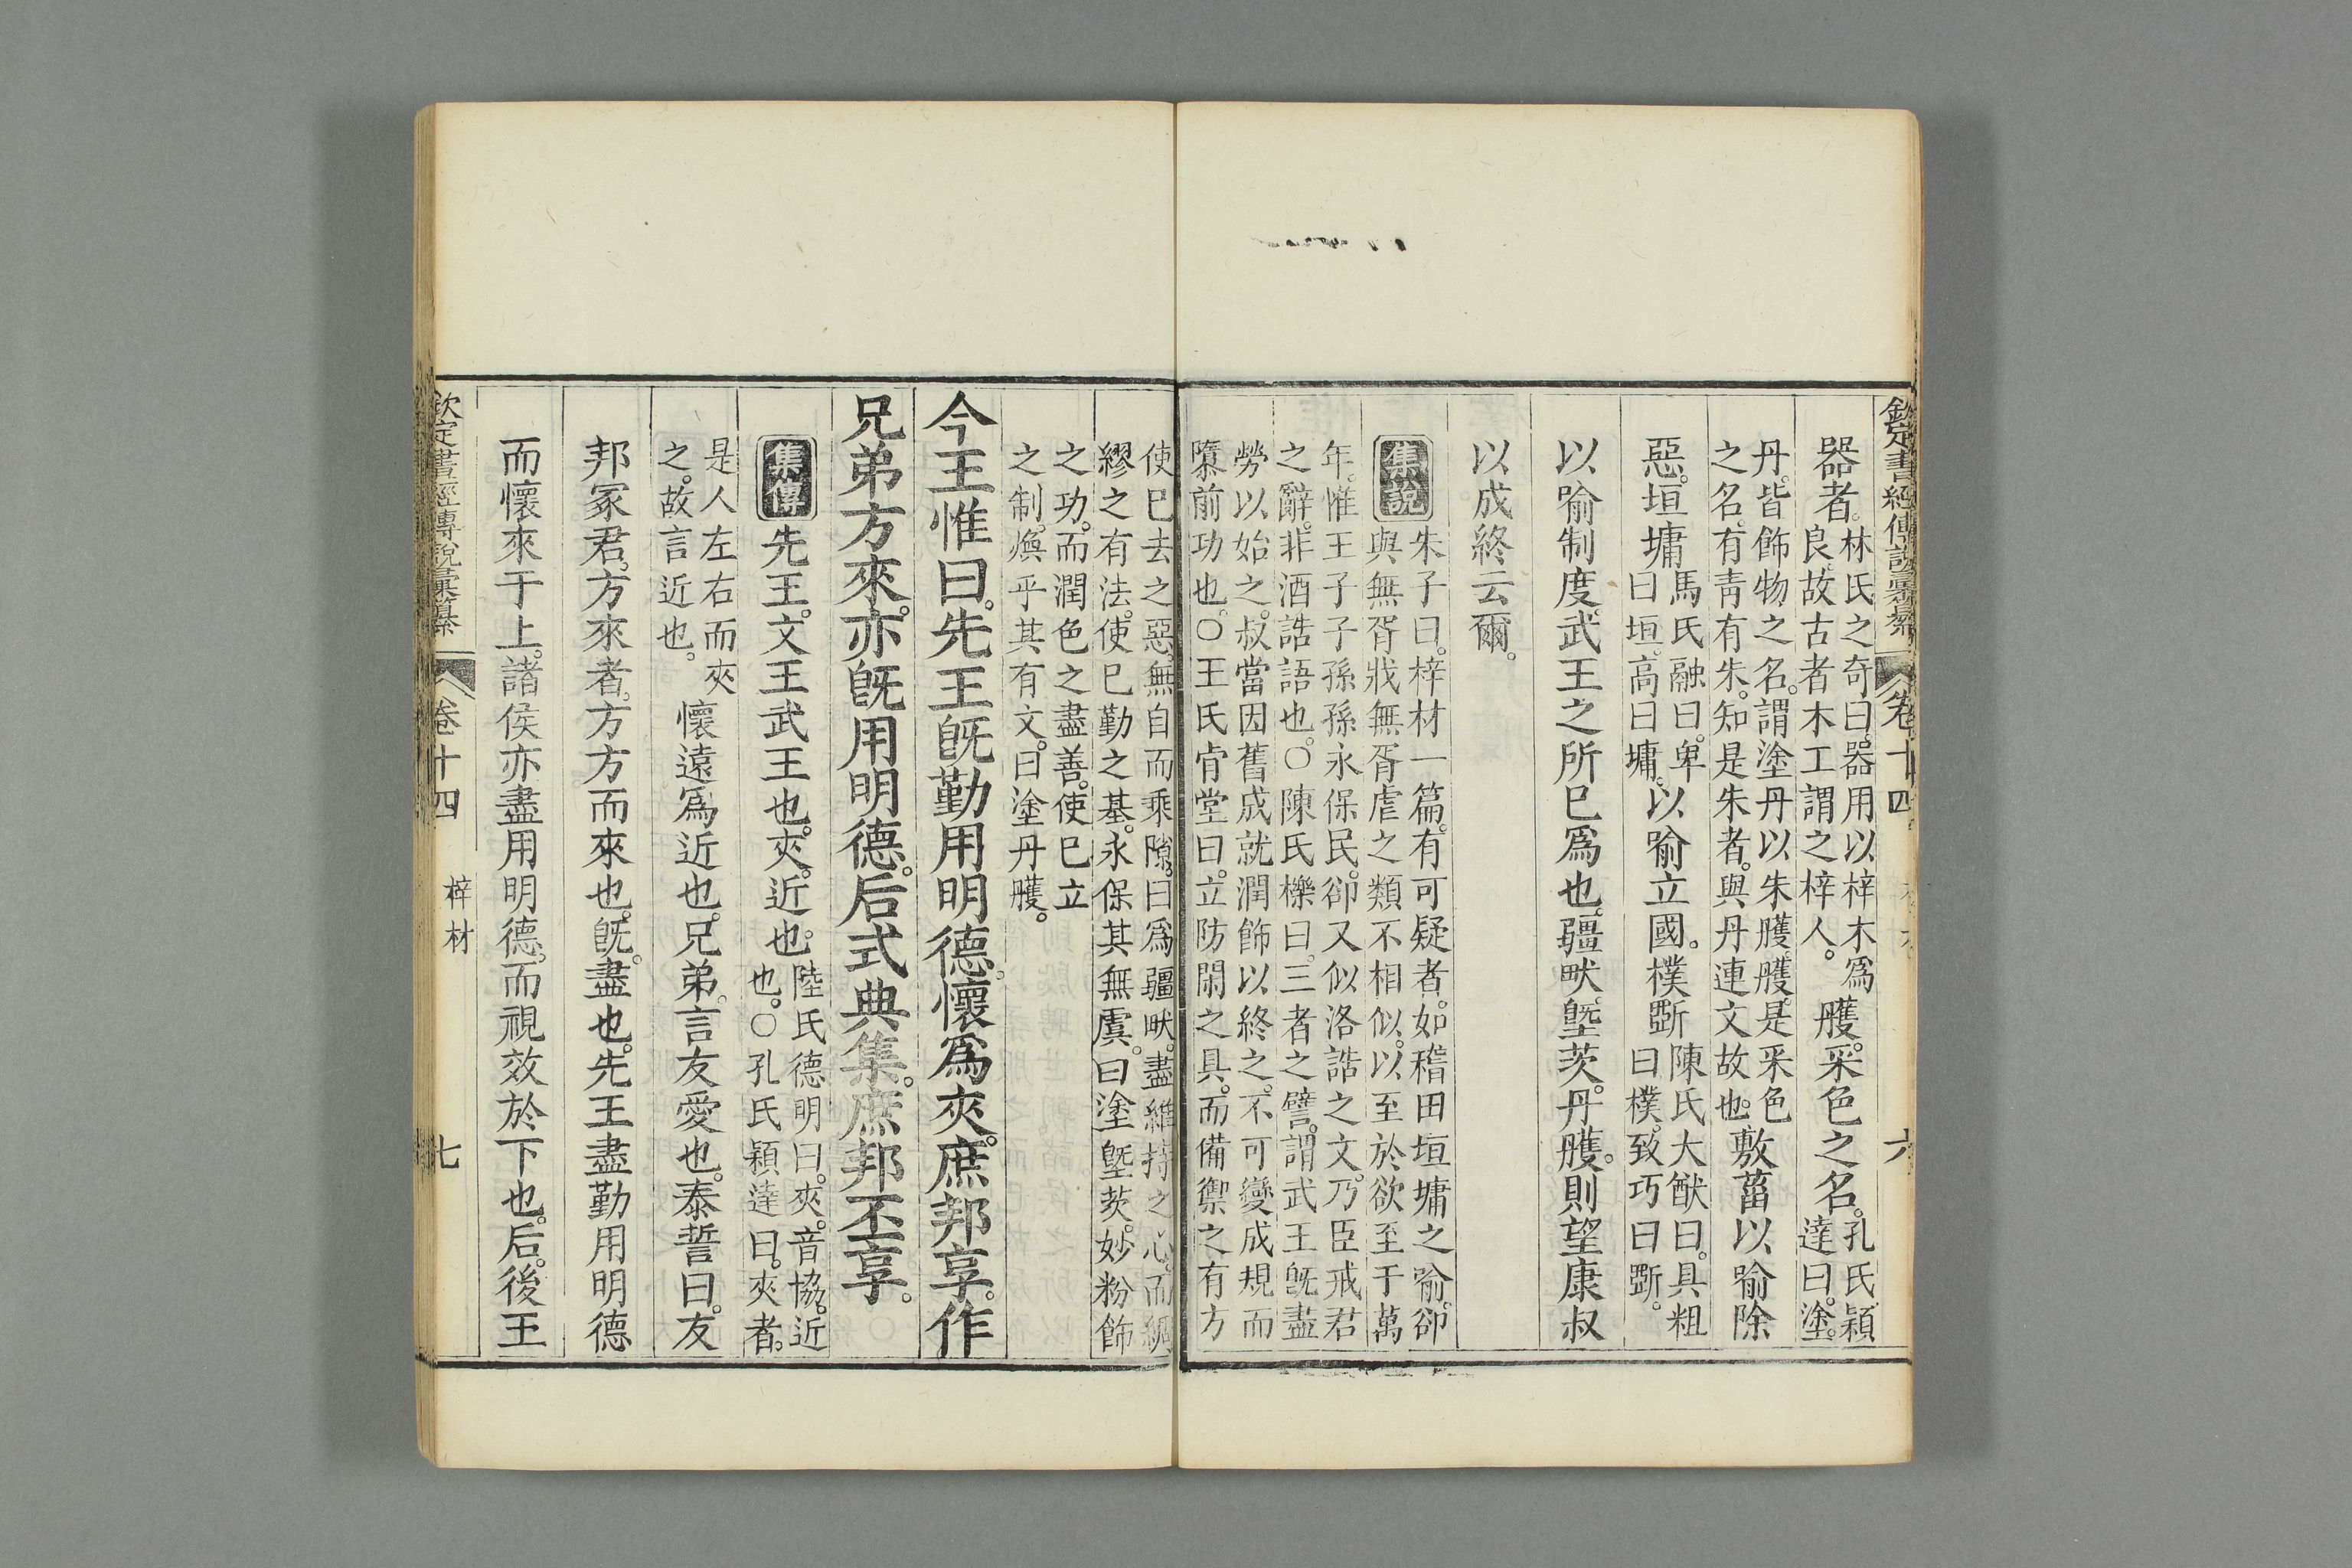 欽定書經傳說彙纂 卷十四 六
器者。林氏之奇曰。器用以梓木爲良。故古者木工謂之梓人。雘。采色之名。孔氏穎達曰。塗。
丹。皆飾物之名。謂塗丹以朱雘。雘。是采色之名。有青有朱。知是朱者。與丹連文故也。敷菑以喻除
惡。垣墉馬氏融曰。卑曰垣。高曰墉。以喻立國。樸斲陳氏大猷曰。具粗曰樸。致巧曰斲。
以喻制度。武王之所已爲也。疆畎墍茨。丹雘。則望康叔
以成終云爾。
集說 朱子曰。梓材一篇。有可疑者。如稽田垣墉之喻。卻
與無胥戕無胥虐之類不相似。以至於欲至于萬
年。惟王子子孫孫永保民。卻又似洛誥之文。乃臣戒君
之辭。非酒誥語也。○陳氏櫟曰。三者之譬。謂武王旣盡
勞以始之。叔當因舊成就潤飾以終之。不可變成規而
隳前功也。○王氏肯堂曰。立防閑之具。而備禦之有方
使已去之惡。無自而乘隙。曰爲疆畎。盡維持之心。而綢
繆之有法。使已勤之基。永保其無虞。曰塗墍茨。妙粉飾
之功。而潤色之盡善。使已立
之制。煥乎其有文。曰塗丹雘。
今王惟曰。先王旣勤用明德。懷爲夾。庶邦享。作
兄弟方來。亦旣用明德。后式典集。庶邦丕享。
集傳 先王。文王武王也。夾。近也。陸氏德明曰。夾。音協。近也。○孔氏穎達曰。夾者。
是人左右而夾之。故言近也。懷遠爲近也。兄弟。言友愛也。泰誓曰。友
邦冢君。方來者。方方而來也。旣。盡也。先王盡勤用明德
而懷來于上。諸侯亦盡用明德。而視效於下也。后。後王
欽定書經傳說彙纂 卷十四 梓材 七